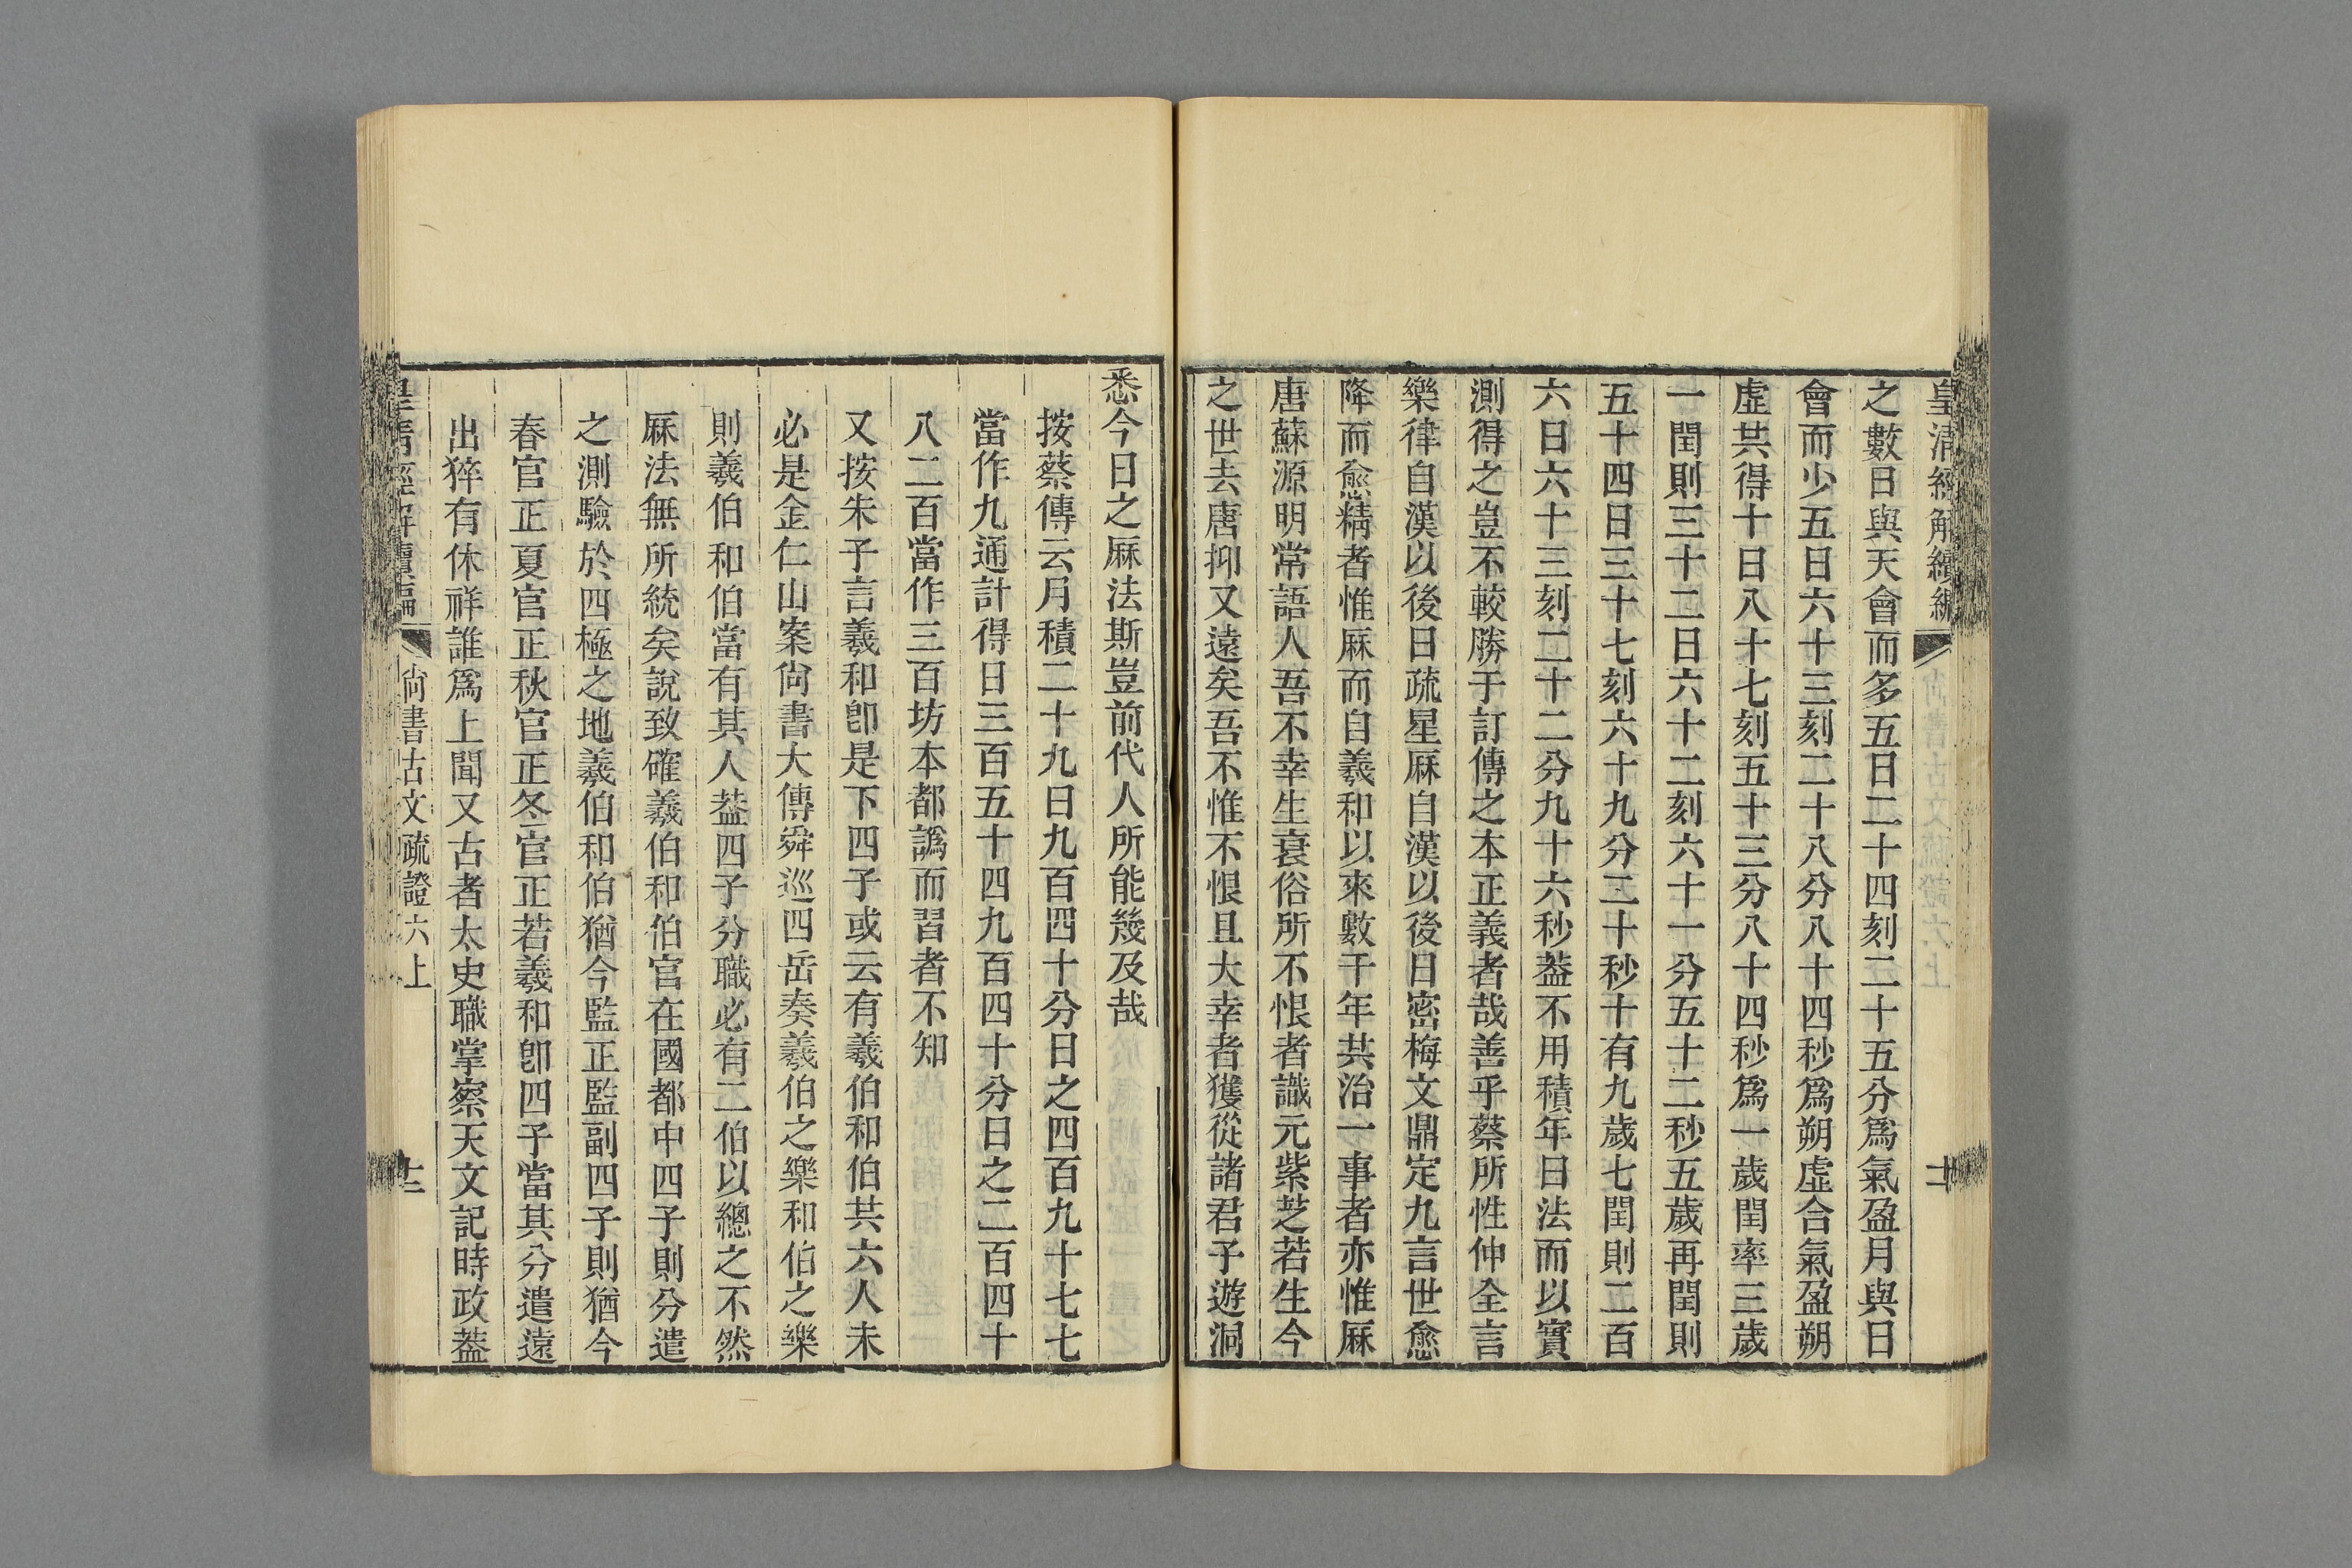 皇清經解續編
之數日與天會而多五日二十四刻二十五分爲氣盈月與日
會而少五日六十三刻二十八分八十四秒爲朔虛合氣盈朔
虛共得十日八十七刻五十三分八十四秒爲一歲閏率三歲
一閏則三十二日六十二刻六十一分五十二秒五歲再閏則
五十四日三十七刻六十九分二十秒十有九歲七閏則二百
六日六十三刻二十二分九十六秒葢不用積年日法而以實
測得之豈不較勝于訂傳之本正義者哉善乎蔡所性仲全言
樂律自漢以後日疏星厤自漢以後日密梅文鼎定九言世愈
降而愈精者惟厤而自羲和以來數千年共治一事者亦惟厤
唐蘇源明常語人吾不幸生衰俗所不恨者識元紫芝若生今
之世去唐抑又遠矣吾不惟不恨且大幸者獲從諸君子遊洞
悉今日之厤法斯豈前代人所能幾及哉
按蔡傳云月積二十九日九百四十分日之四百九十七七
當作九通計得日三百五十四九百四十分日之二百四十
八二百當作三百坊本都譌而習者不知
又按朱子言羲和卽是下四子或云有羲伯和伯共六人未
必是金仁山案尙書大傳舜巡四岳奏羲伯之樂和伯之樂
則羲伯和伯當有其人葢四子分職必有二伯以總之不然
厤法無所統矣說致確羲伯和伯官在國都中四子則分遣
之測驗於四極之地羲伯和伯猶今監正監副四子則猶今
春官正夏官正秋官正冬官正若羲和卽四子當其分遣遠
出猝有休祥誰爲上聞又古者太史職掌察天文記時政葢
皇清經解續編
尙書古文疏證六上
十二